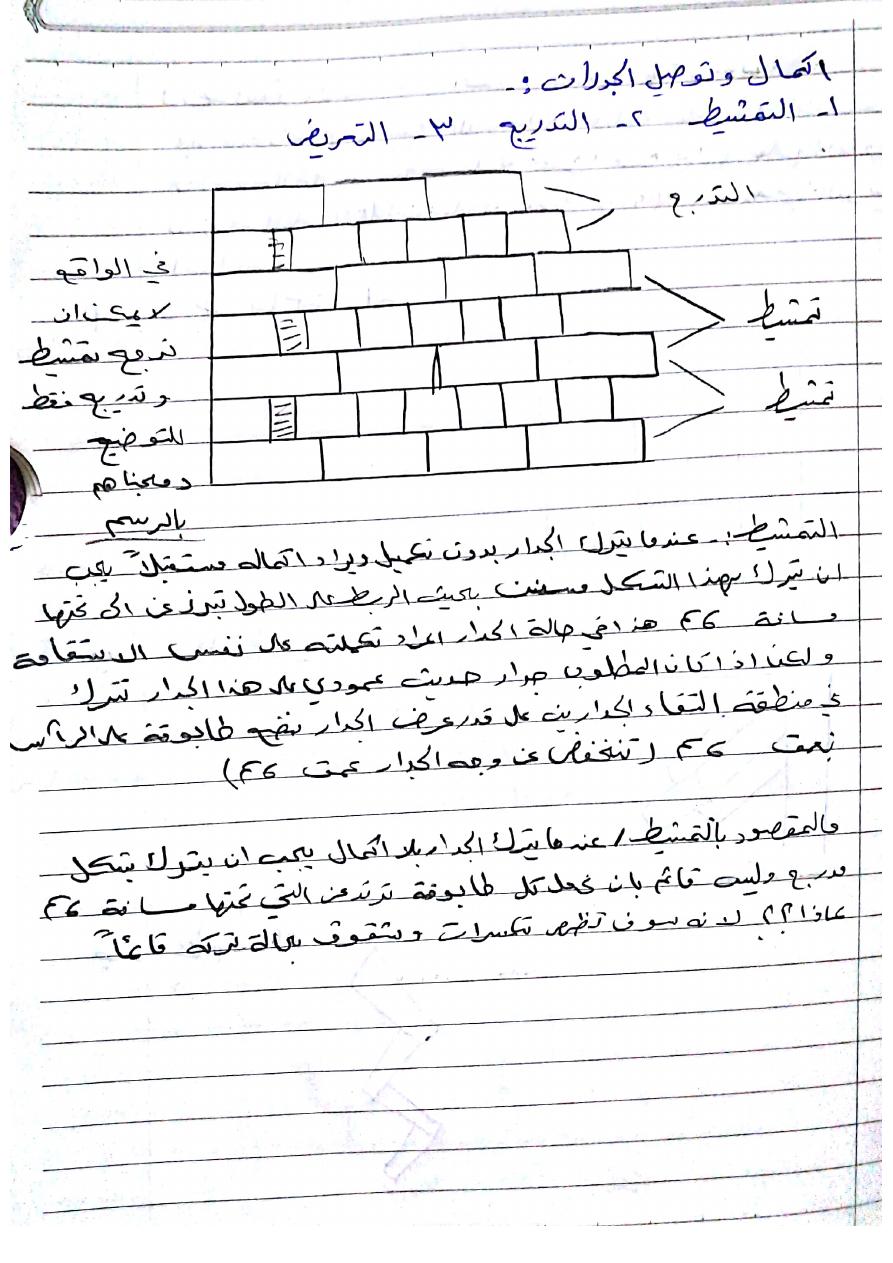 اكمال وتوصيل الجدران :-
١- التمشيط ٢- التدريج ٣- التعريض
التدرج
في الواقع
لا يمكن ان
ندمج تمشيط
وتدريج فقط
للتوضيح
دمجناهم
بالرسم
تمشيط
تمشيط
التمشيط :- عندما يترك الجدار بدون تكميل ويراد اكماله مستقبلاً يجب
ان يترك بهذا الشكل مسنن بحيث الربط على الطول تبرز عن الى تحتها
مسافة 6cm هذا في حالة الجدار المراد تكملته على نفس الاستقامة
ولكن اذا كان المطلوب جدار حديث عمودي على هذا الجدار تترك
في منطقة التقاء الجدارين على قدر عرض الجدار نضع طابوقة على الرأس
بعمق 6cm (تنخفض عن وجه الجدار عمق 6cm)
فالمقصود بالتمشيط / عندما يترك الجدار بلا اكمال يجب ان يترك بشكل
مدرج وليس قائم بان نجعل كل طابوقة ترتد عن التي تحتها مسافة 6cm
لماذا؟؟ لانه سوف تظهر تكسرات وشقوق بحالة تركه قائماً